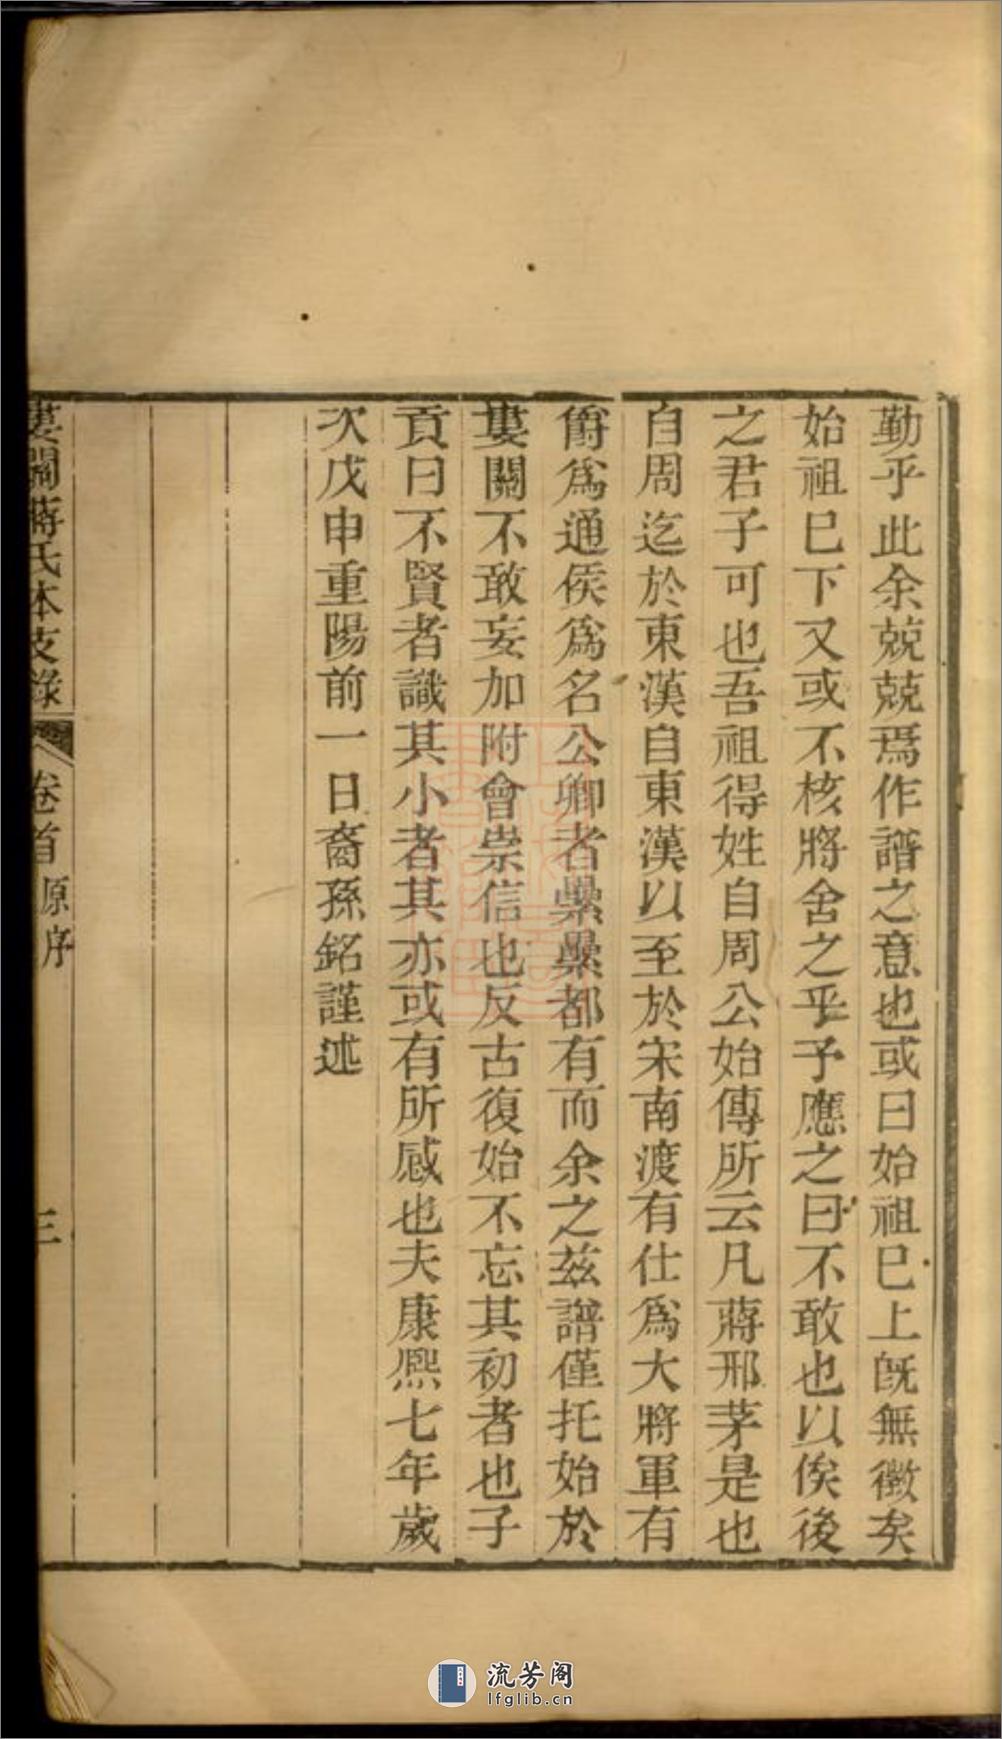 勤乎此余兢兢焉作譜之意也或曰始祖巳上旣無徵矣
始祖巳下又或不核將舍之乎予應之曰不敢也以俟後
之君子可也吾祖得姓自周公始傳所云凡蔣邢茅是也
自周迄於東漢自東漢以至於宋南渡有仕爲大將軍有
爵爲通侯爲名公卿者纍纍都有而余之茲譜僅托始於
婁關不敢妄加附會崇信也反古復始不忘其初者也子
貢曰不賢者識其小者其亦或有所感也夫康熙七年歲
次戊申重陽前一日裔孫銘謹述
婁關蔣氏本支錄
卷首
原序
三
流芳阁
lfglib.cn